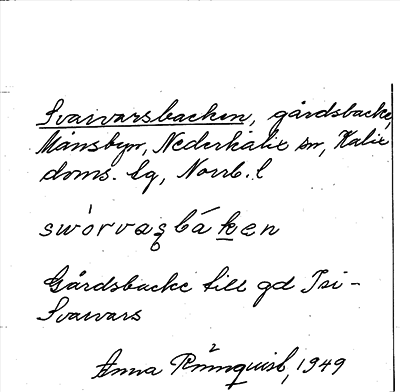 Svarvarsbacken, gårdsbacke,
Månsbyn, Nederkalix sn, Kalix
doms. lq, Norrb. l
Gårdsbacke till gd Tsi-
Svarvars
Anna Rönnquist, 1949